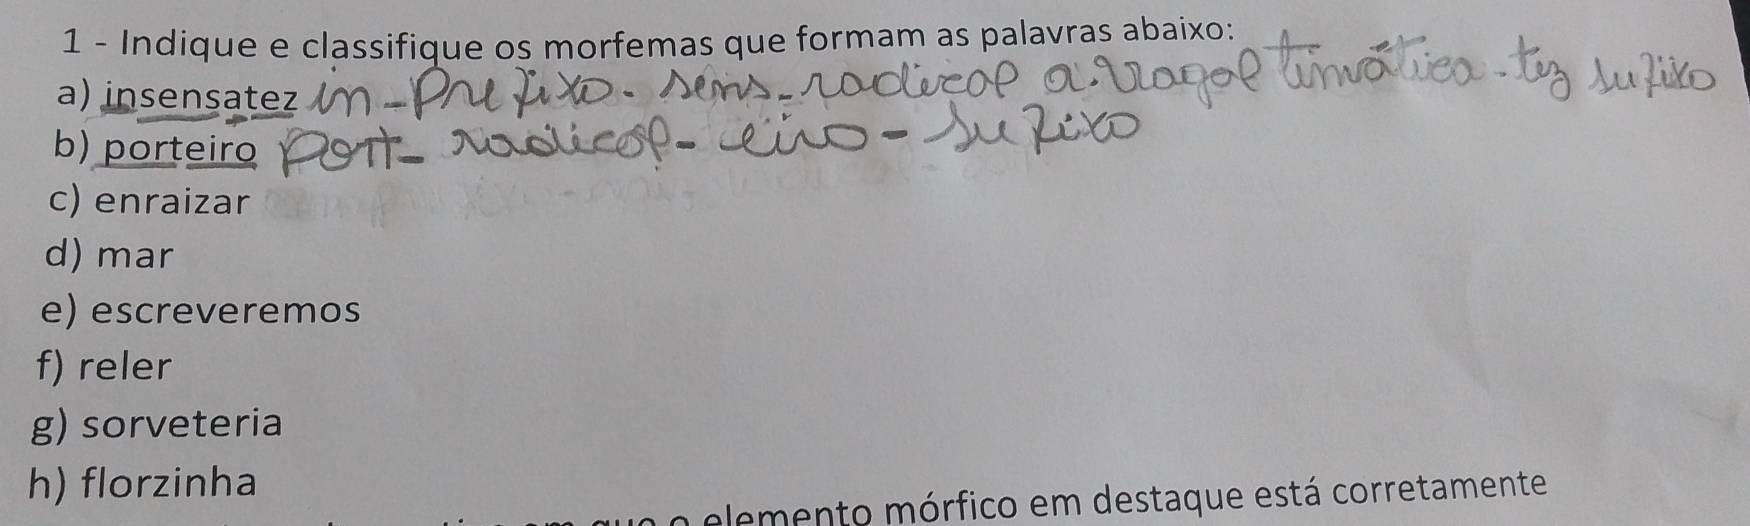 1 - Indique e classifique os morfemas que formam as palavras abaixo:
a) insensatez in - prefixo - sens - radical a. vogal temática - tez sufixo
b) porteiro port - radical - eiro - sufixo
c) enraizar
d) mar
e) escreveremos
f) reler
g) sorveteria
h) florzinha
que o elemento mórfico em destaque está corretamente